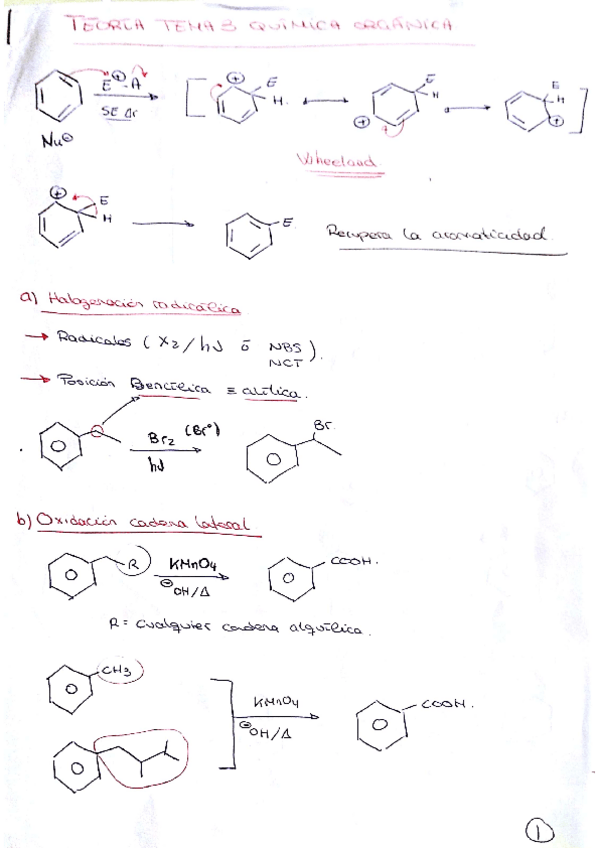 TEORÍA TEMA 3 QUÍMICA ORGÁNICA
E ⊕ A
SE Ar
Nu⊖
⊕ E H
⊕ E H
E H ⊕
Wheeland
⊕ E H
E
Recupera la aromaticidad.
a) Halogenación radicálica
→ Radicales ( X2/hν ó NBS ).
NCT
→ Posición Bencílica ≡ alílica.
Br2 (Br°)
hν
Br
b) Oxidación cadena lateral
R
KMnO4
⊖OH/Δ
COOH.
R = cualquier cadena alquílica.
CH3
KMnO4
⊖OH/Δ
COOH.
1